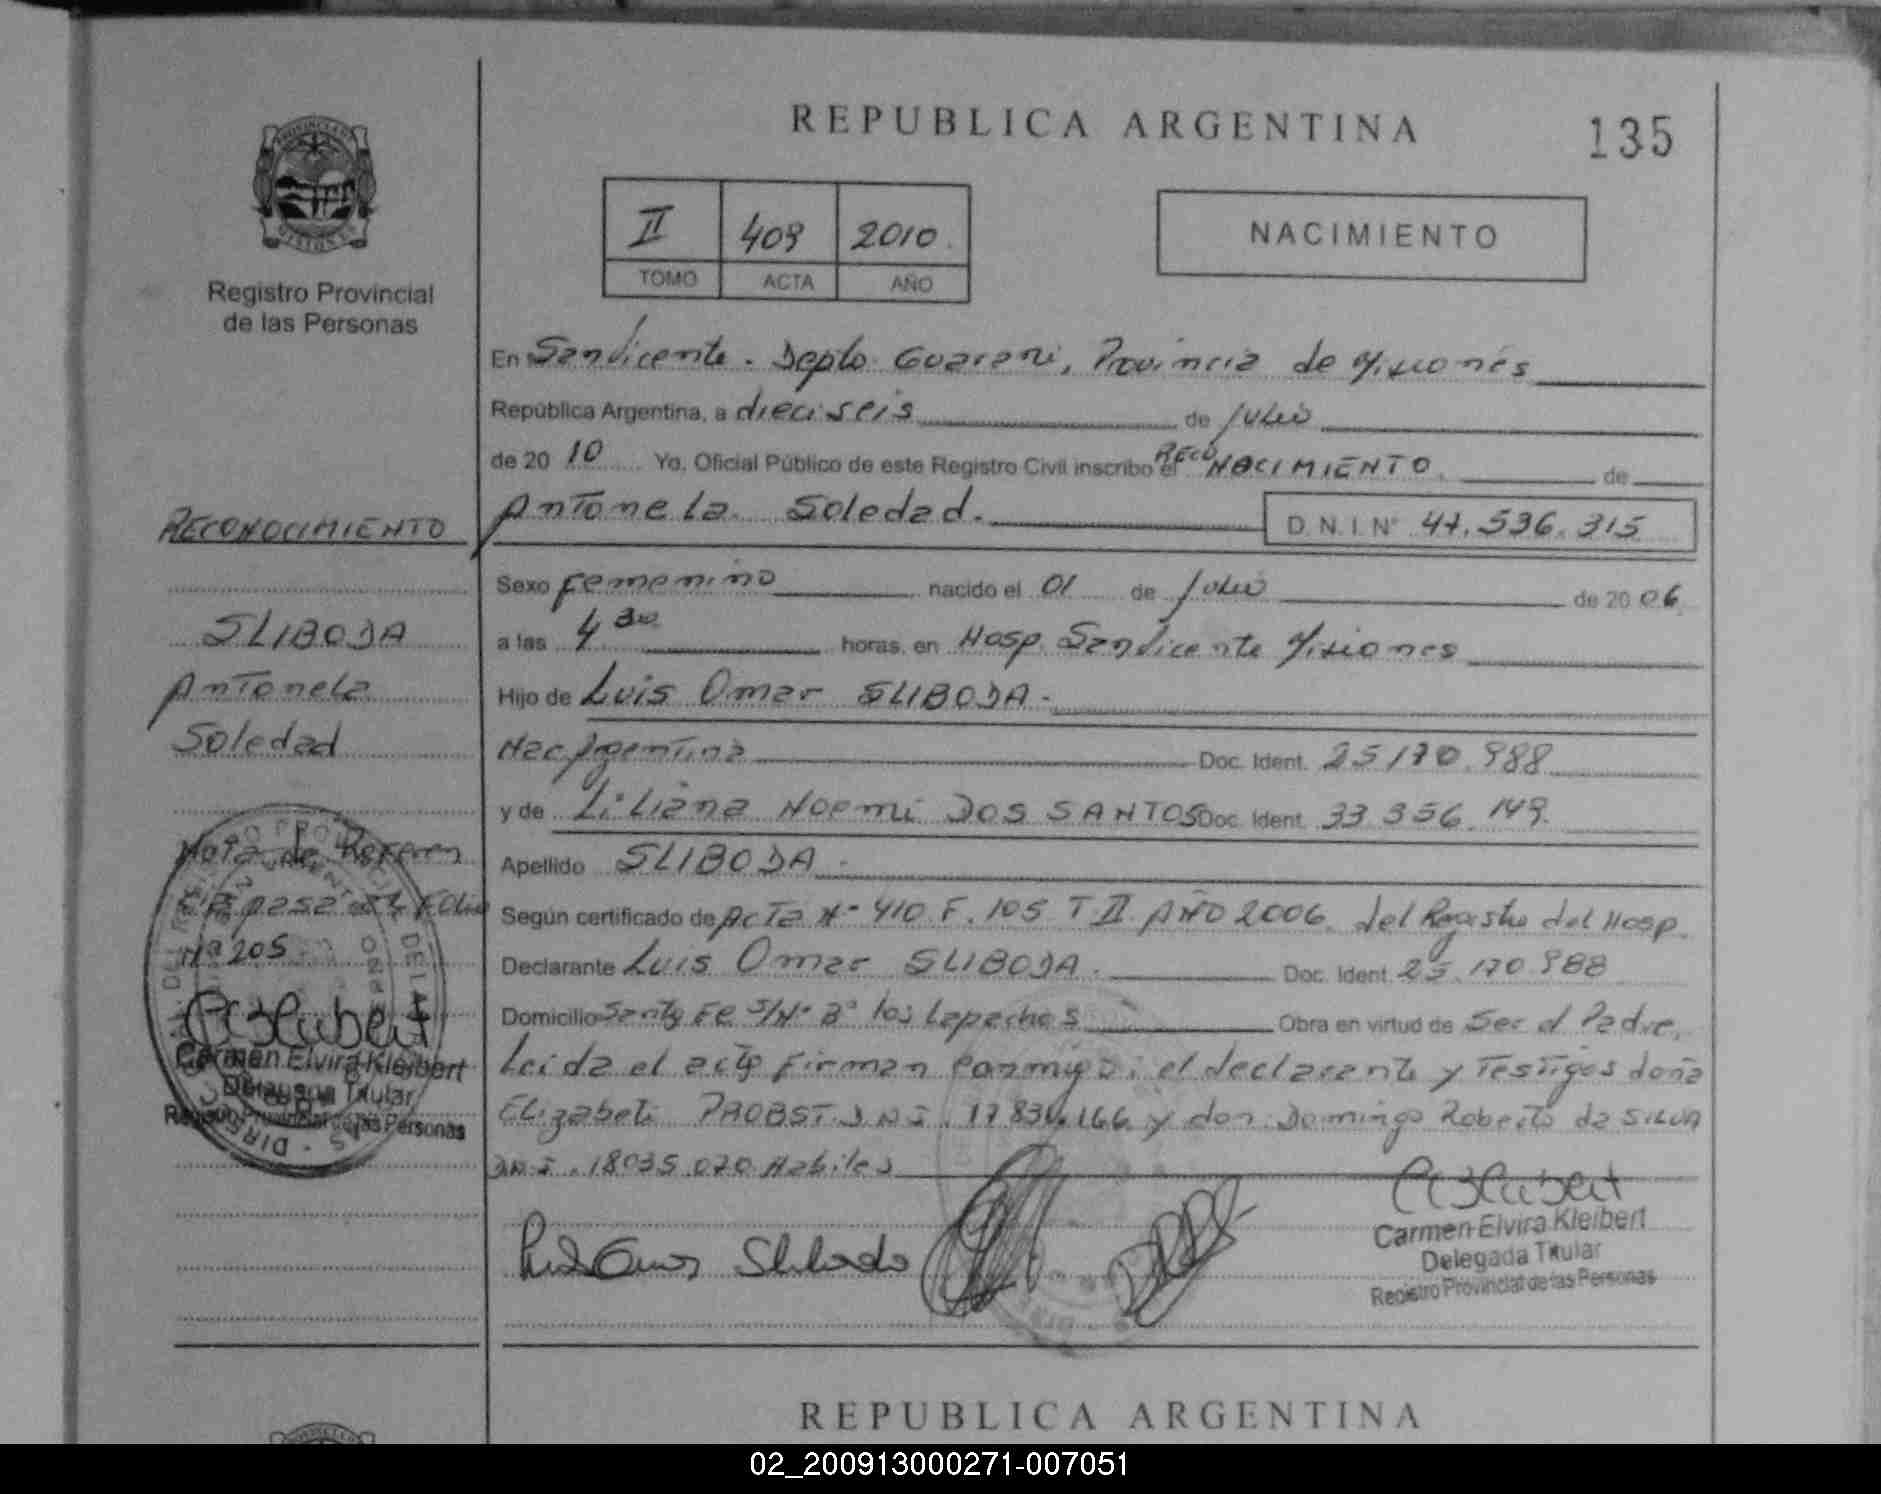 REPUBLICA ARGENTINA
135
II 409 2010
TOMO ACTA AÑO
NACIMIENTO
Registro Provincial
de las Personas
En San Vicente. Depto Guarani, Provincia de Misiones
República Argentina, a dieciseis de Julio
de 20 10 Yo, Oficial Público de este Registro Civil inscribo el RECO NOCIMIENTO. de
Antonela Soledad. D. N. I. N° 47.536.315
Sexo Femenino nacido el 01 de Julio de 20 06
a las 4 30 horas, en Hosp. San Vicente Misiones
Hijo de Luis Omar SLIBODA.
Nac Argentina Doc. Ident. 25 170.988
y de Liliana Noemi DOS SANTOS Doc. Ident. 33 356.149.
Apellido SLIBODA.
Según certificado de Acta N° 410 F. 105 T II AÑO 2006. del Registro del Hosp.
Declarante Luis Omar SLIBODA. Doc. Ident. 25.170.988
Domicilio Santa Fe S/N° B° los Lapachos Obra en virtud de Ser el Padre.
Leida el acta Firman conmigo: el declarante y Testigos doña
Elizabeti PROBST. D N I. 17 834.166 y don Domingo Roberto da SILVA
D N I. 18035 070 Habiles
RECONOCIMIENTO
SLIBODA
Antonela
Soledad
Nota de Referen
cia pasa al Folio
N° 205
Carmen Elvira Kleibert
Delegada Titular
Registro Provincial de las Personas
Carmen Elvira Kleibert
Delegada Titular
Registro Provincial de las Personas
REPUBLICA ARGENTINA
02_200913000271-007051